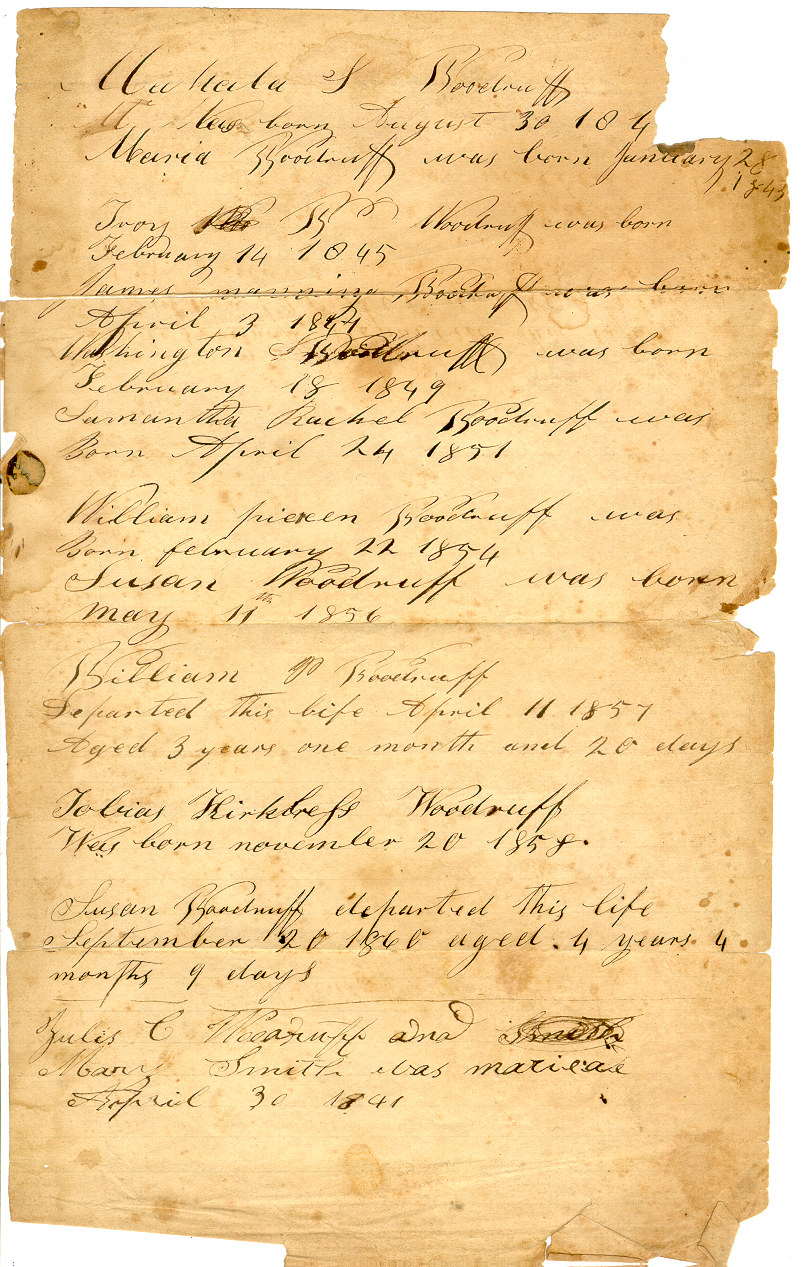 Mahala S Woodruff
Was born August 30 184
Maria Woodruff was born January 28
1843
Ivory W Woodruff was born
February 14 1845
James manning Woodruff was born
April 3 1847
Washington S Woodruff was born
February 18 1849
Samantha Rachel Woodruff was
Born April 24 1851
William pireen Woodruff was
Born february 22 1854
Susan Woodruff was born
may 11th 1856
William P Woodruff
Departed this life April 11 1857
Aged 3 years one month and 20 days
Tobias Kirkbress Woodruff
Was born november 20 1858.
Susan Woodruff departed this life
September 20 1860 aged. 4 years 4
months 9 days
Zulis C Woodruff and Smith
Mary Smith was maried
April 30 1841